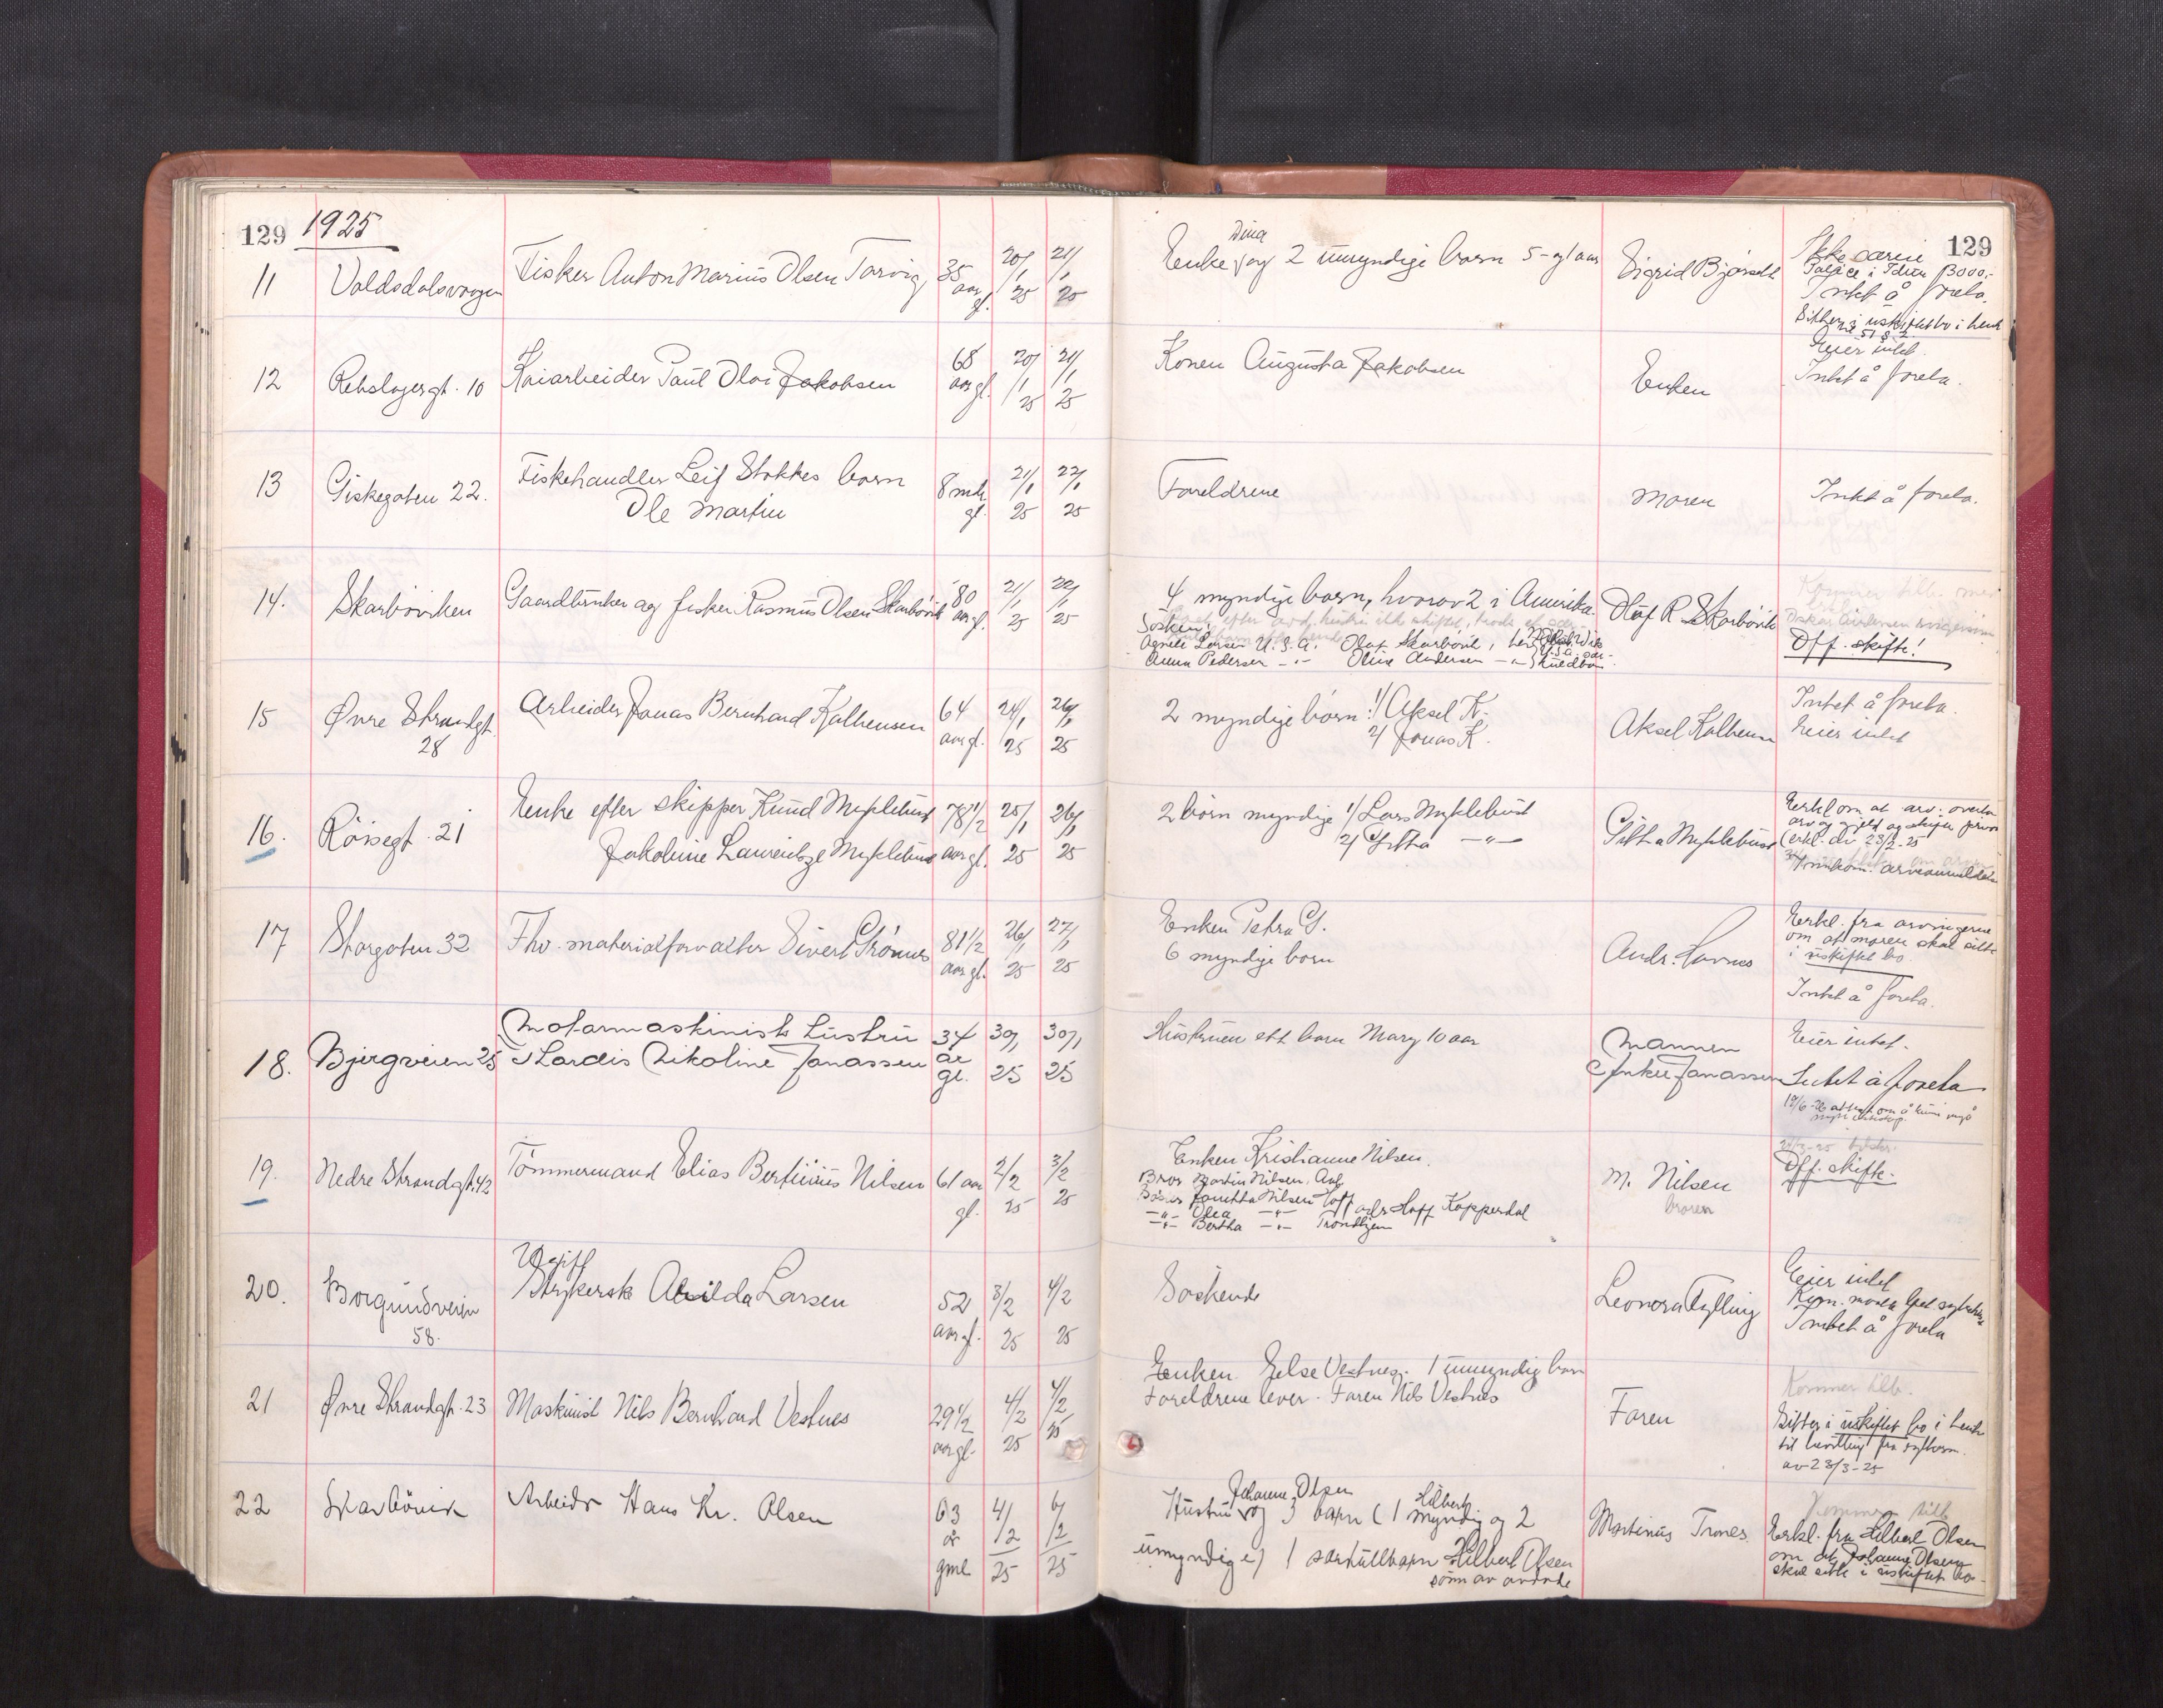 129 1925
11 Valdsdalsvaagen Fisker Anton Marius Olsen Tarvig 35 aar gl. 20/1 25 21/1 25
Dina
Enke og 2 umyndige barn 5- gl aar
Sigrid Bjørset
129
Ikke
Polise i Idun 3000,-
Intet å foreta.
Sitter i uskiftet bo i henh
12 Rebslagergt. 10 Kaiarbeider Paul Olai Jakobsen 68 aar gl. 20/1 25 21/1 25
Konen Augusta Jakobsen
Enken
Eier intet.
Intet å foreta.
13 Giskegaten 22. Fiskehandler Leif Stokkes barn
Ole Martin
8 mdr gl. 21/1 25 22/1 25
Foreldrene
Moren
Intet å foreta.
14. Skarbøviken Gaardbruker og fisker Rasmus Olsen Skarbøvik 80 aar gl. 21/1 25 22/1 25
4 myndige barn, hvorav 2 i Amerika.
Søsken:
Agnete Larsen U.S.A. Olaf Skarbøvik, her
Anna Pedersen -"- Oline Andersen -"-
Olaf R. Skarbøvik
Oskar Andersen
Off. skifte!
15 Øvre Strandgt. 28 Arbeider Jonas Bernhard Kalhensen 64 aar gl. 24/1 25 26/1 25
2 myndige børn: 1/ Aksel K.
2/ Jonas K.
Aksel Kalhensen
Intet å foreta.
Eier intet
16. Røisegt. 21 Enke efter skipper Knud Myklebust
Jakobine Laurentze Myklebust
78 1/2 aar gl. 25/1 25 26/1 25
2 børn myndige 1/ Lars Myklebust
2/ Gitta -"-
Gitta Myklebust
Erkl om at arv. overta
arv og gjeld og skifter privat
(erkl. av 23/2-25
innkom. arveanmeldelse
17 Storgaten 32 Fhv. materialforvalter Sivert Grønnes 81 1/2 aar gl. 26/1 25 27/1 25
Enken Petra G.
6 myndige barn
Andr. Havnes
Erkl. fra arvingerne
om at moren skal sitte
i uskiftet bo.
Intet å foreta.
18. Bjergveien 25 Motormaskinist hustru
Lardis Nikoline Jonassen
34 år gl. 30/1 25 30/1 25
Huskruen ett barn Mary 10 aar
Mannen
Inker Jonassen
Eier intet.
Intet å foreta
19/6-26 attest om å kunne inngå
nytt ekteskap.
19. Nedre Strandgt. 42 Tømmermand Elias Bertinius Nilsen 61 aar gl. 2/2 25 3/2 25
Enken Kristianne Nilsen.
Bror Martin Nilsen, Aal
Søster Janetta Nilsen Hoff adr Hoff Kopperdal
-"- Olea -"-
-"- Bertha -"- Trondhjem
M. Nilsen
broren
Off. skifte.
20. Borgundveien 58. Ugift
Strykerske Alvilda Larsen
52 aar gl. 3/2 25 4/2 25
Søskende
Leonora Tylling
Eier intet
Intet å foreta
21 Øvre Strandgt. 23 Maskinist Nils Bernhard Vestnes 29 1/2 aar gl. 4/2 25 4/2 25
Enken Else Vestnes. 1 umyndig barn
Foreldrene lever. Faren Nils Vestnes
Faren
Kommer tilb.
Sitter i uskiftet bo i henh
til bevilling fra sysborm.
av 23/3-25
22 Skarbøvik Arbeider Hans Kr. Olsen 63 år gml 4/2 25 6/2 25
Johanne Olsen Hilbert
Hustru og 3 barn (1 myndig og 2
umyndige) 1 særkullbarn Hilbert Olsen
sønn av avdøde
Martinus Trones
Kommer tilb
Erkl. fra Hilbert Olsen
om at Johanne Olsen
skal sitte i uskiftet bo.